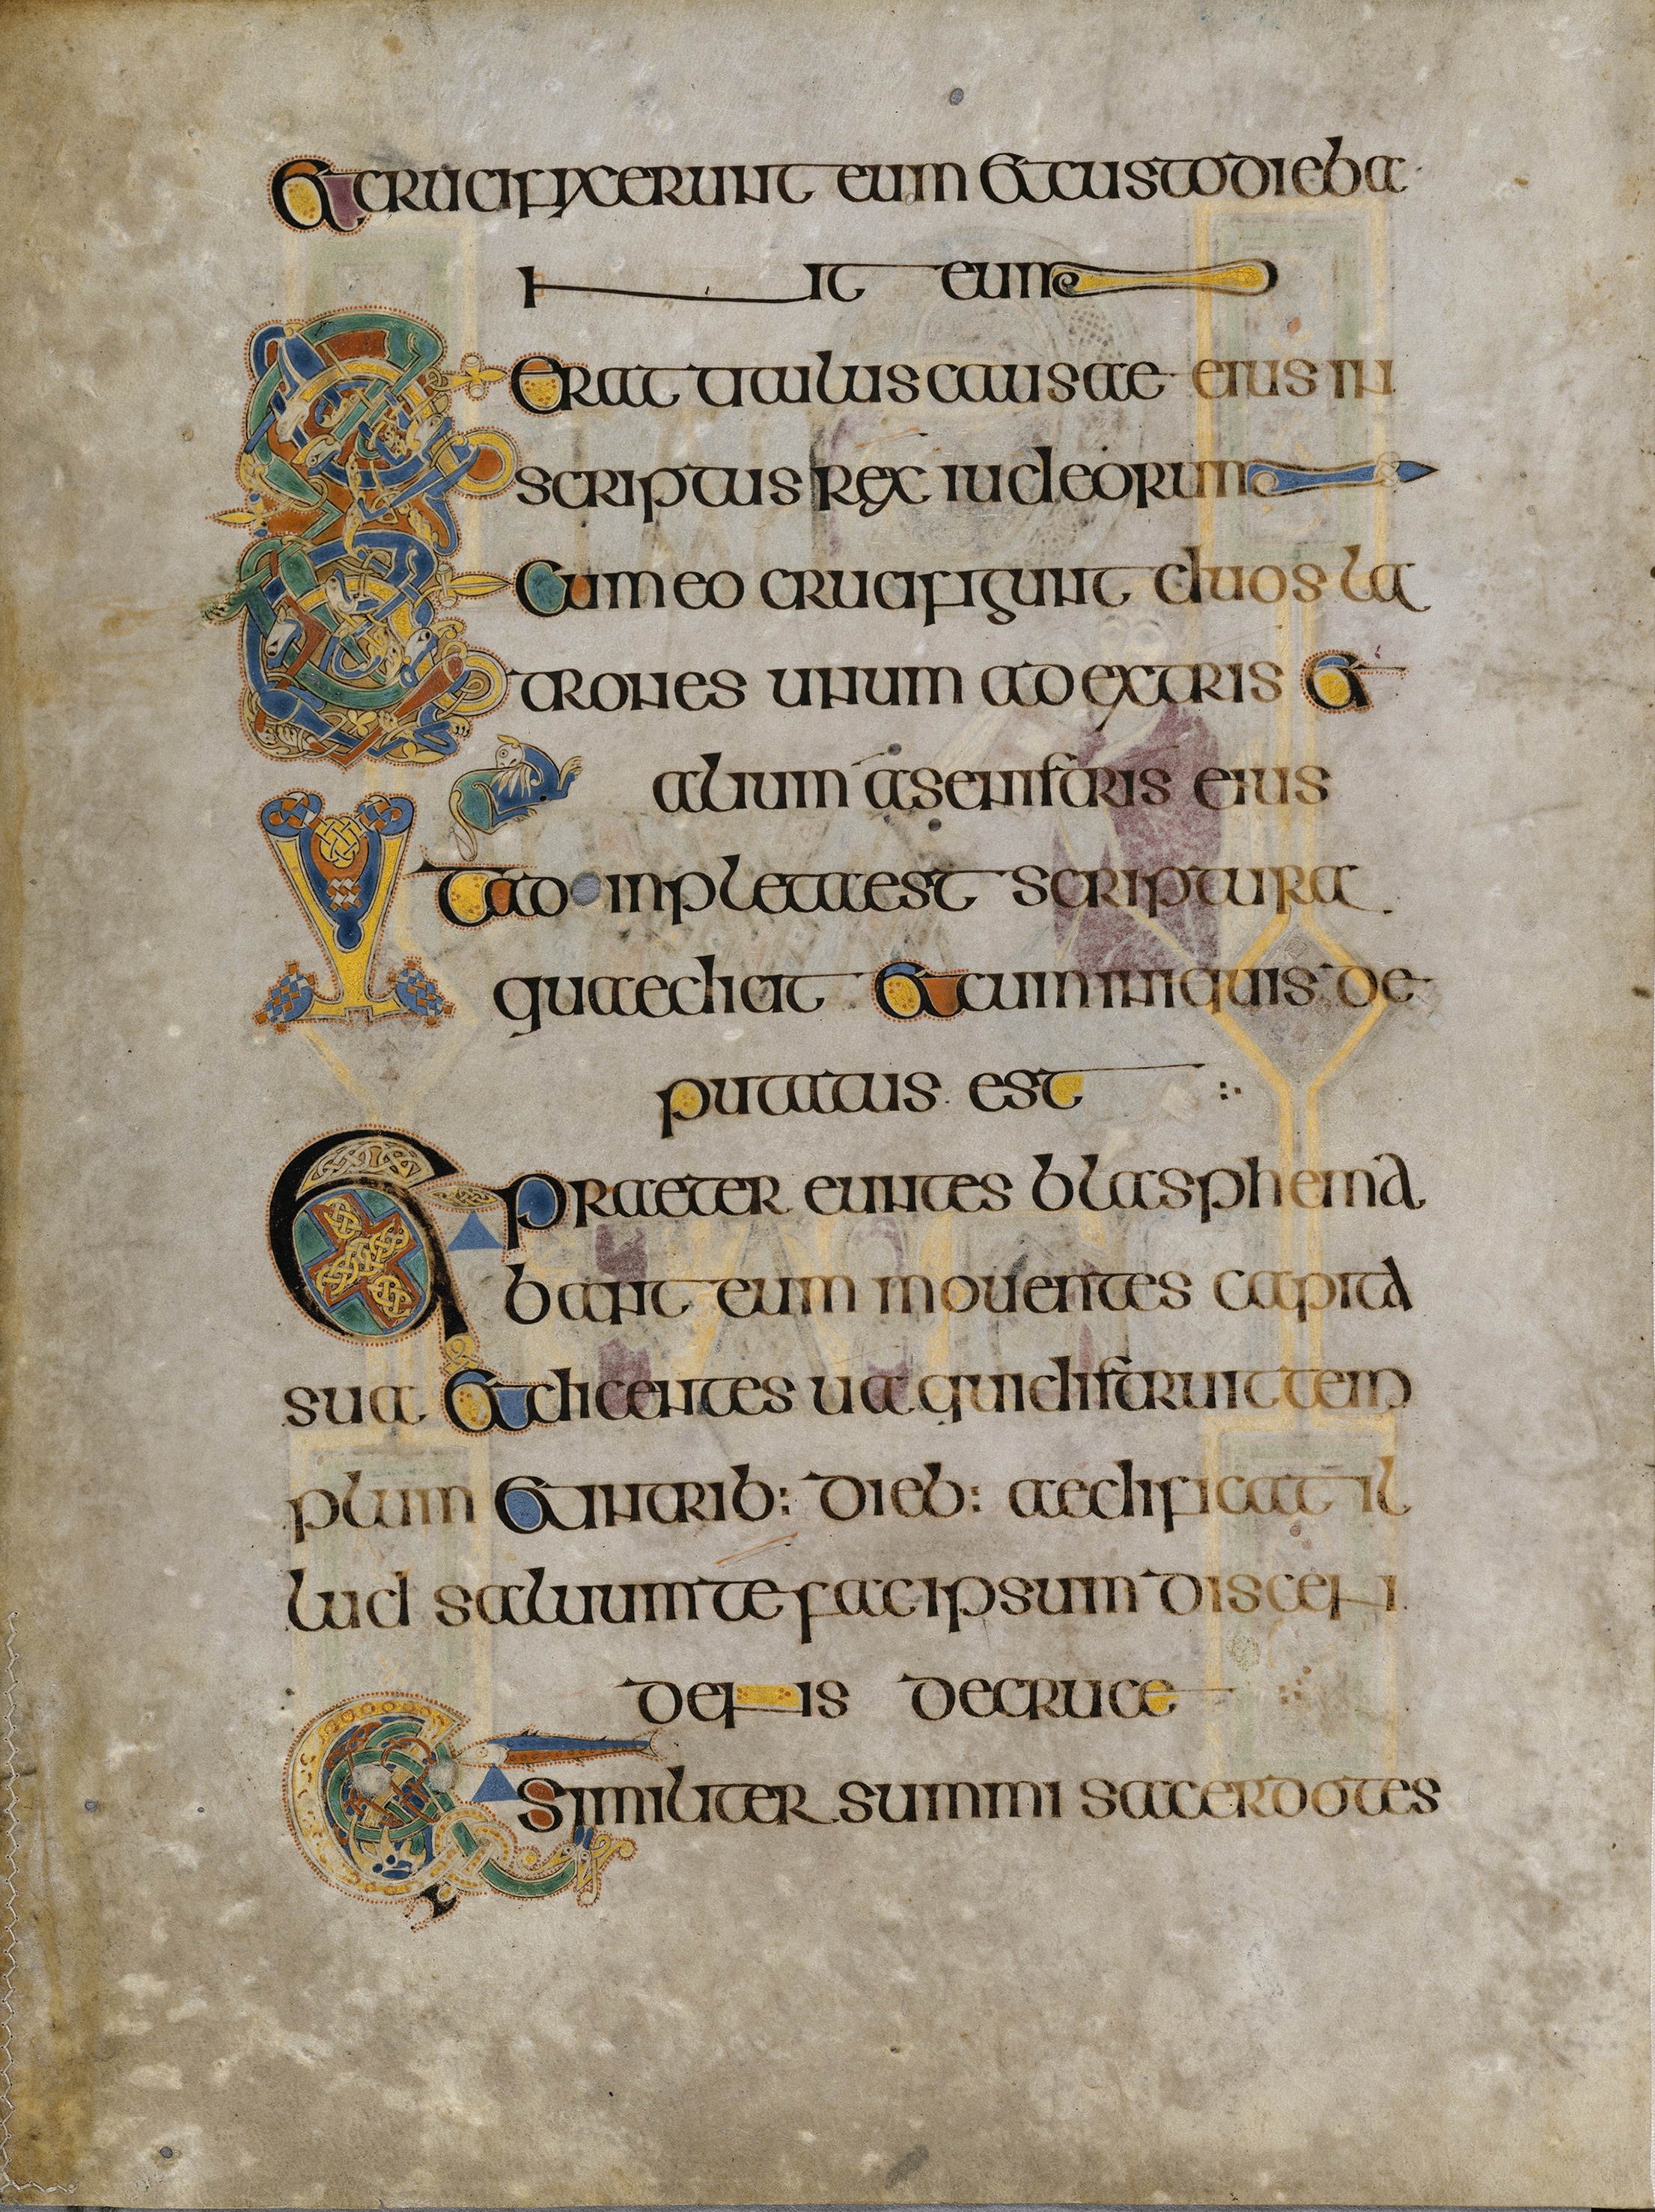 Et crucifixerunt eum et custodieba
nt eum
Et erat titulus causae eius in
scriptus rex iudeorum
Et cum eo crucifigunt duos la
trones unum ad extris et
alium a senistris eius
Vt ad inpleta est scriptura
quae dicit et cum iniquis de
putatus est :·
Et praeter euntes blasphema
bant eum mouentes capita
sua et dicentes ua qui distruit tem
plum et in trib: dieb: aedificat il
lud saluum te fac ipsum discen
dens de cruce
Et similiter summi sacerdotes